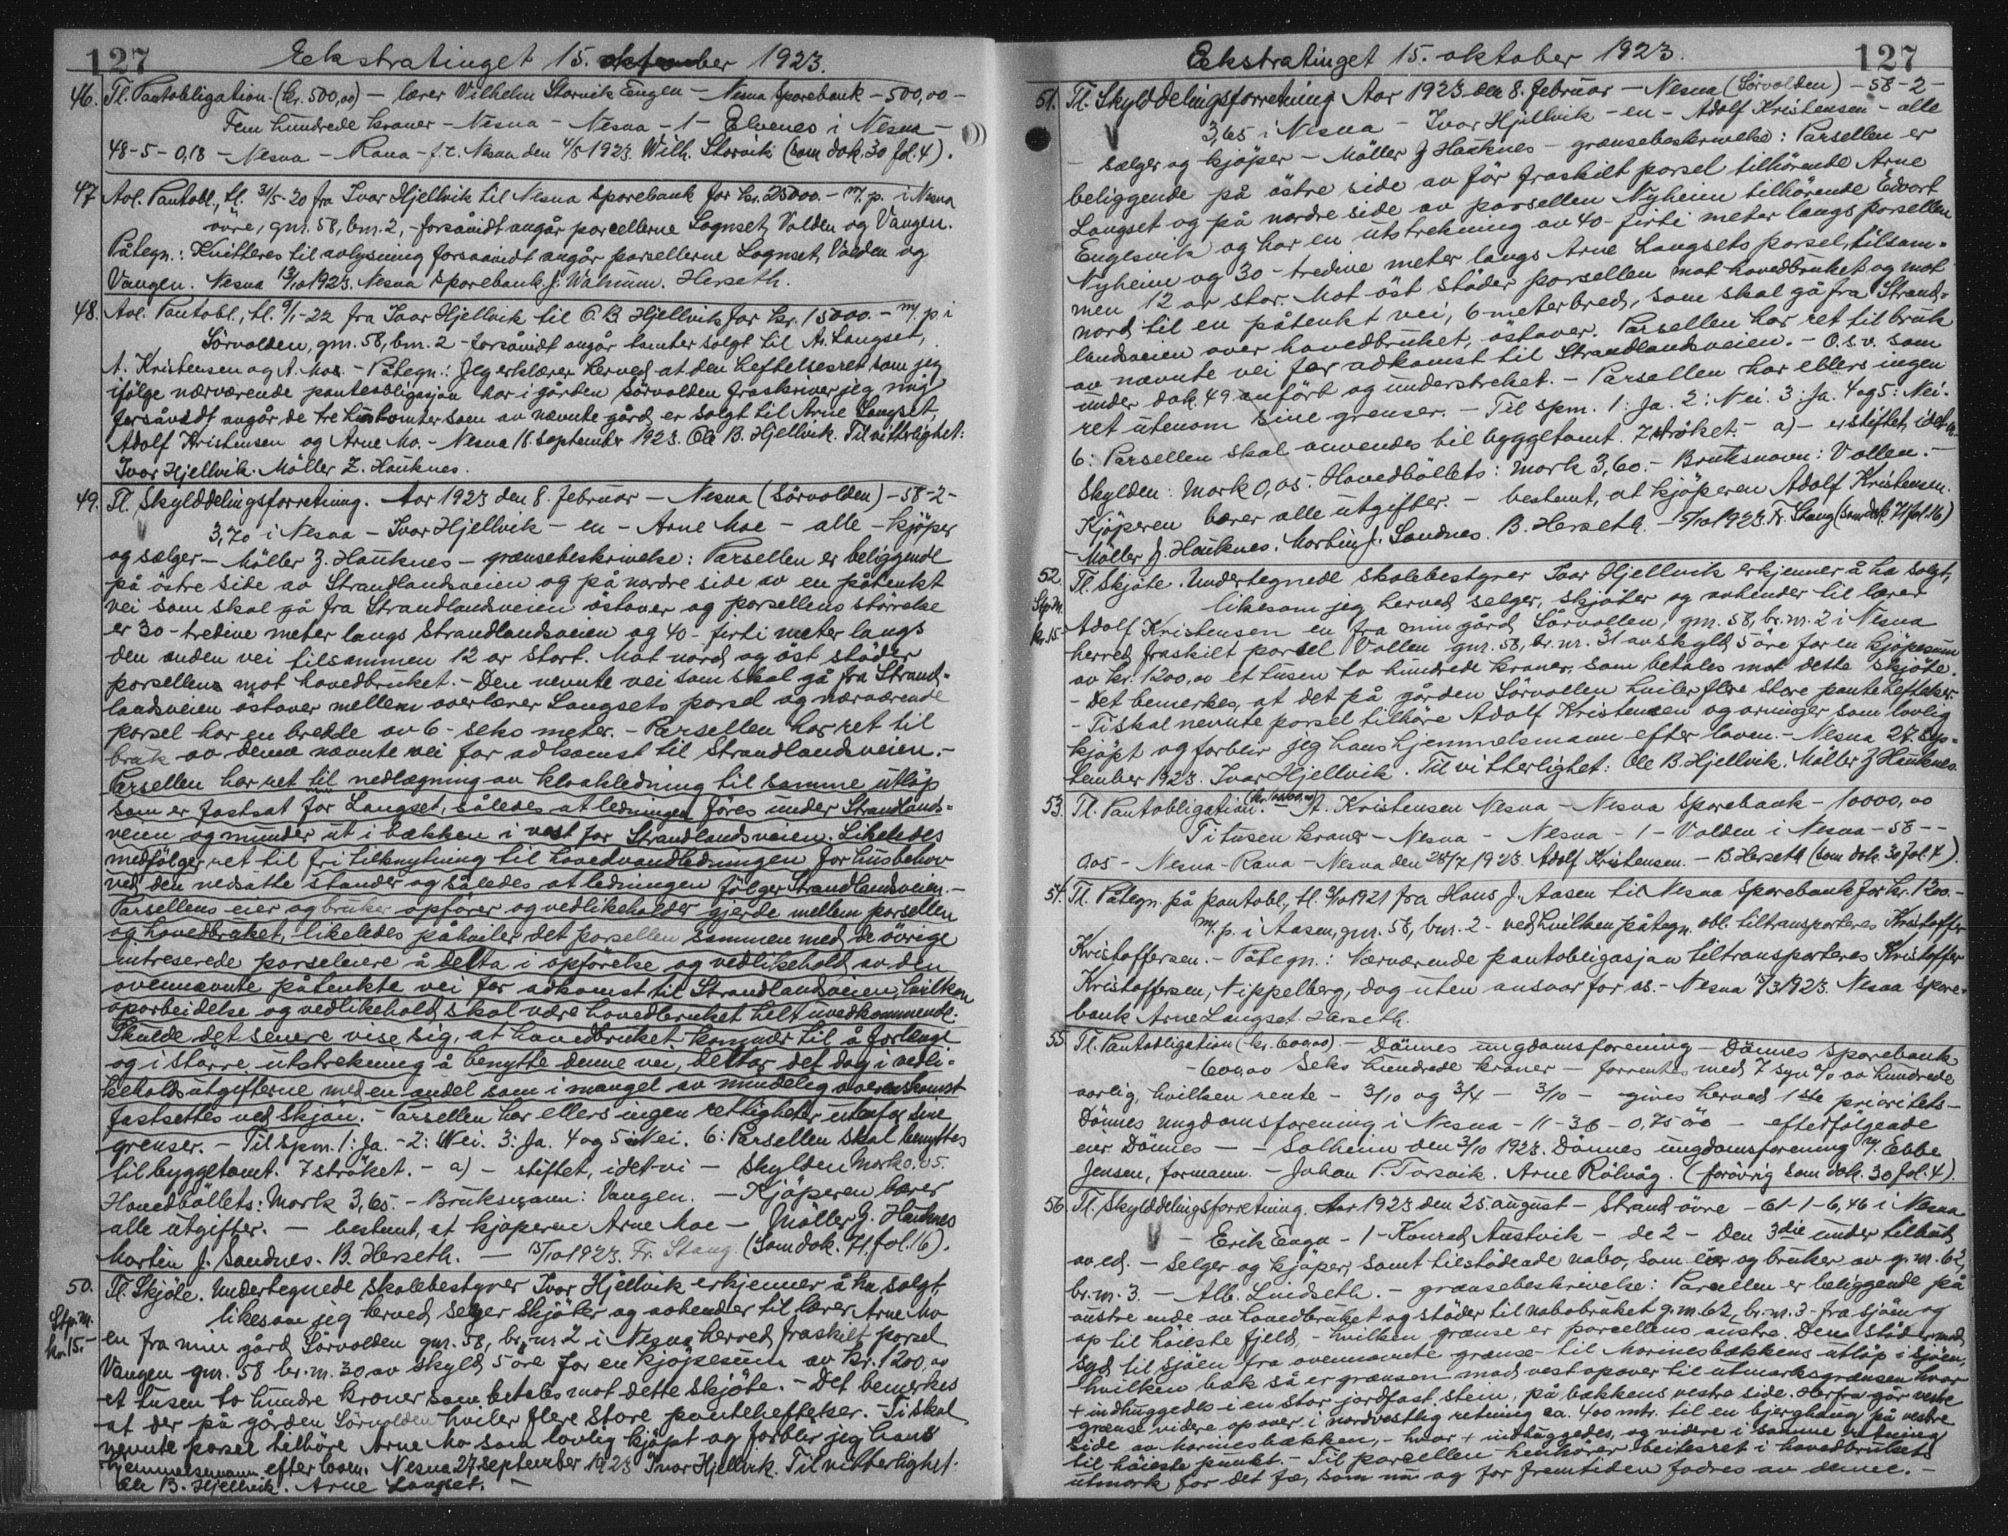 127
Ekstratinget 15. oktober 1923.
46. Tl. Pantobligation (kr. 500,00) – lærer Vilhelm Storvik Engen – Nesna Sparebank – 500,00 –
Fem hundrede kroner – Nesna – Nesna – 1 – Elvenes i Nesna –
48-5-0,18 – Nesna – Rana – f.t. Nesna den 4/5 1923. Wilh. Storvik (som dok. 30 fol. 4).
47. Avl. Pantobl., tl. 31/5-20 fra Ivar Hjellvik til Nesna Sparebank for kr. 25000.- m. p. i Nesna
övre, gnr. 58, bnr. 2, - forsåvidt angår parcellerne Lognset, Valden og Vangen.
Påtegn.: Kvitteres til avlysning forsaavidt angår parsellerne Lognset, Valden og
Vangen. Nesna 13/10 1923. Nesna Sparebank J. Walnum. Herseth.
48. Avl. Pantobl., tl. 9/1-22 fra Ivar Hjellvik til O. B. Hjellvik for kr. 15000.- m. p. i
Sörvolden, gnr. 58, bnr. 2 - forsåvidt angår tomter solgt til A. Langset,
A. Kristensen og A. Moe. - Påtegn.: Jeg erklærer herved at den heftelsesret som jeg
ifölge nærværende panteobligasjon har i gården Sörvolden fraskriver jeg mig
forsåvidt angår de tre hustomter som av nævnte gård er solgt til Arne Langset,
Adolf Kristensen og Arne Mo. - Nesna 18 september 1923. Ole B. Hjellvik. Til vitterlighet:
Ivar Hjellvik. Möller Z. Hauknes.
49. Tl. Skylddelingsforretning. Aar 1923 den 8. februar – Nesna (Sörvolden) – 58-2-
3,70 i Nesna – Ivar Hjellvik – en – Arne Moe – alle – kjöper
og sælger – Möller Z. Hauknes – grænsebeskrivelse: Parsellen er beliggende
på östre side av Strandlandsveien og på nordre side av en påtenkt
vei som skal gå fra Strandlandsveien östover og parsellens störrelse
er 30 - tredive meter langs Strandlandsveien og 40 - firti meter langs
den anden vei tilsammen 12 ar stort. Mot nord og öst stöder
parsellen mot hovedbruket. - Den nevnte vei som skal gå fra Strand-
landsveien östover mellem overlærer Langsets parsel og nærværende
parsel har en bredde av 6 - seks meter. - Parsellen har ret til
bruk av denne nævnte vei for adkomst til Strandlandsveien. -
Parsellen har ret til nedlægning av kloakledning til samme utlöp
som er fastsat for Langset, således at ledningen föres under Strandlands-
veien og munder ut i bækken i vest for Strandlandsveien. Likeledes
medfölger ret til fri tilknytning til hovedvandledningen for husbehov
ved den nedsatte stander og således at ledningen fölger Strandlandsveien. -
Parsellens eier og bruker opförer og vedlikeholder gjerde mellem parsellen
og hovedbruket, likeledes påhviler det parsellen sammen med de övrige
intreserede parseleiere å delta i opförelse og vedlikehold av den
ovennævnte påtenkte vei for adkomst til Strandlandsveien, hvilken
oparbeidelse og vedlikehold skal være hovedbruket helt uvedkommende.
Skulde det senere vise sig, at hovedbruket kommer til å forlange
og i större utstrekning å benytte denne vei, deltar det dog i vedli-
keholdsutgifterne med en andel som i mangel av mindelig overenskomst
fastsettes ved skjön. - Parsellen har ellers ingen rettigheter utenfor sine
grenser. - Til spm. 1: Ja. - 2: Nei. 3: Ja. 4 og 5: Nei. 6: Parsellen skal benyttes
til byggetomt. 7 ströket. - a) - stiftet, idet vi – Skylden Mark 0.05.
Hovedböllets: Mark 3,65. - Bruksnavn: Vangen. - Kjöperen bærer
alle utgifter. - bestemt, at kjöperen Arne Moe – Möller Z. Hauknes
Martin J. Sandnes. B. Herseth. – 5/10 1923. Fr. Stang. (Som dok. 71 fol. 16).
50. Tl. Skjöte. Undertegnede skolebestyrer Ivar Hjellvik erkjenner å ha solgt,
Stp.M. likesom jeg herved selger, skjöter og avhender til lærer Arne Mo
kr. 15.- en fra min gård Sörvolden gnr. 58, br. nr. 2 i Nesna herred, fraskilt parsel
Vangen gnr. 58 br. nr. 30, av skyld 5 öre for en kjöpesum av kr. 1200,00
et tusen to hundre kroner som betales mot dette skjöte. - Det bemerkes
at der på gården Sörvolden hviler flere store panteheftelser. - Ti skal
nevnte parsel tilhöre Arne Mo som lovlig kjöpt og forblir jeg hans
hjemmelsmann efter loven. Nesna 27 september 1923 Ivar Hjellvik. Til vitterlighet:
Ole B. Hjellvik. Arne Langset. –
Ekstratinget 15. oktober 1923.
127
51. Tl. Skylddelingsforretning Aar 1923 den 8. februar – Nesna (Sörvolden) – 58-2-
3,65 i Nesna – Ivar Hjellvik – en – Adolf Kristensen – alle
– sælger og kjöper – Möller Z. Hauknes – grænsebeskrivelse: Parsellen er
beliggende på östre side av för fraskilt parsel tilhörende Arne
Langset og på nordre side av parsellen Nyheim tilhörende Edvart
Englesvik og har en utstrekning av 40 - firti meter langs parsellen
Nyheim og 30 - tredive meter langs Arne Langsets parsel, tilsam-
men 12 ar stor. Mot öst stöder parsellen mot hovedbruket og mot
nord til en påtenkt vei, 6 meter bred, som skal gå fra Strand-
landsveien over hovedbruket, östover. Parsellen har ret til bruk
av nævnte vei for adkomst til Strandlandsveien. - O.s.v. som
under dok. 49 anfört og understreket. - Parsellen har ellers ingen
ret utenom sine grenser. - Til spm. 1: Ja. 2: Nei. 3: Ja. 4 og 5: Nei.
6: Parsellen skal anvendes til byggetomt. 7 ströket. - a) - er stiftet, idet vi -
Skylden: Mark 0,05. Hovedböllets: Mark 3,60. - Bruksnavn: Vollen. -
Kjöperen bærer alle utgifter. - bestemt, at kjöperen Adolf Kristensen.
- Möller Z. Hauknes. Martin J. Sandnes. B. Herseth. - 5/10 1923. Fr. Stang (som dok. 71 fol. 16)
52. Tl. Skjöte. Undertegnede skolebestyrer Ivar Hjellvik erkjenner å ha solgt,
Stp.M. likesom jeg herved selger, skjöter og avhender til lærer
kr. 15.- Adolf Kristensen en fra min gård Sörvollen, gnr. 58, br. nr. 2 i Nesna
herred fraskilt parsel Vollen gnr. 58, br. nr. 31 av skyld 5 öre for en kjöpesum
av kr. 1200,00 et tusen to hundrede kroner, som betales mot dette skjöte.
- Det bemerkes, at det på gården Sörvollen hviler flere store panteheftelser
- Ti skal nevnte parsel tilhöre Adolf Kristensen og arvinger som lovlig
kjöpt og forblir jeg hans hjemmelsmann efter loven. - Nesna 27. sep-
tember 1923. Ivar Hjellvik. Til vitterlighet: Ole B. Hjellvik. Möller Z Hauknes.
53. Tl. Pantobligation. (kr. 10000,00) – A. Kristensen Nesna – Nesna Sparebank – 10000,00
Ti tusen kroner – Nesna – Nesna – 1 – Valden i Nesna – 58 – –
0,05 – Nesna – Rana – Nesna den 28/7 1923. Adolf Kristensen. – B. Herseth (som dok. 30 fol. 4).
54. Tl. Påtegn. på pantobl., tl. 3/10 1921 fra Hans J. Aasen til Nesna Sparebank for kr. 1200.-
m. p. i Aasen, gnr. 58, bnr. 2 - ved hvilken påtegn. obl. tiltransporteres Kristoffer
Kristoffersen. - Påtegn.: Nærværende pantobligasjon tiltransporteres Kristoffer
Kristoffersen, Nippelberg, dog uten ansvar for os. - Nesna 5/3 1923. Nesna Spare-
bank Arne Langset. Herseth.
55. Tl. Pantobligation (kr. 600,00) – Dönnes ungdomsforening – Dönnes Sparebank
– 600,00 Seks hundrede kroner – forrentes med 7 syv % av hundrede
aarlig, hvilken rente – 3/10 og 3/4 – 3/10 – gives herved 1ste prioritets –
Dönnes ungdomsforening i Nesna – 11-36-0,75 öre – efterfölgende
eier Dönnes – – Solheim den 3/10 1923. Dönnes ungdomsforening v/ Ebbe
Jensen, formann. – Johan P. Forsvik. Arne Rölvåg. (forövrig som dok. 30 fol. 4).
56. Tl. Skylddelingsforretning. Aar 1923 den 25. august – Strand övre – 61-1-6,46 i Nesna
– Erik Enga – 1 – Konrad Austvik – de 2 – Den 3die under tilbud
av ed. – Selger og kjöper, samt tilstödende nabo, som eier og bruker av g. nr. 62,
br. nr. 3. – Alb. Lindseth. – grænsebeskrivelse: Parcellen er beliggende på
austre ende av hovedbruket og stöder til nabobruket g.nr. 62, br. nr. 3 - fra sjöen og
op til höieste fjeld, - hvilken grænse er parcellens austre. Den stöder mod
syd til sjöen fra ovennævnte grænse til Mormesbækkens utlöp i sjöen,
hvilken bæk så er grænsen mod vest opover til utmarksgrænsen hvor
+ indhuggedes i en stor jordfast sten, på bækkens vestre side. Herfra går vestre
grænse videre opover i nordvestlig retning ca. 400 mtr. til en bjerghaug på vestre
side av Mormesbækken, - hvor + indhuggedes, og videre i samme retning
til höieste punkt. - Til parcellen henhörer beitesret i hovedbrukets
utmark for det fæ, som nu og for fremtiden fodres av denne. -